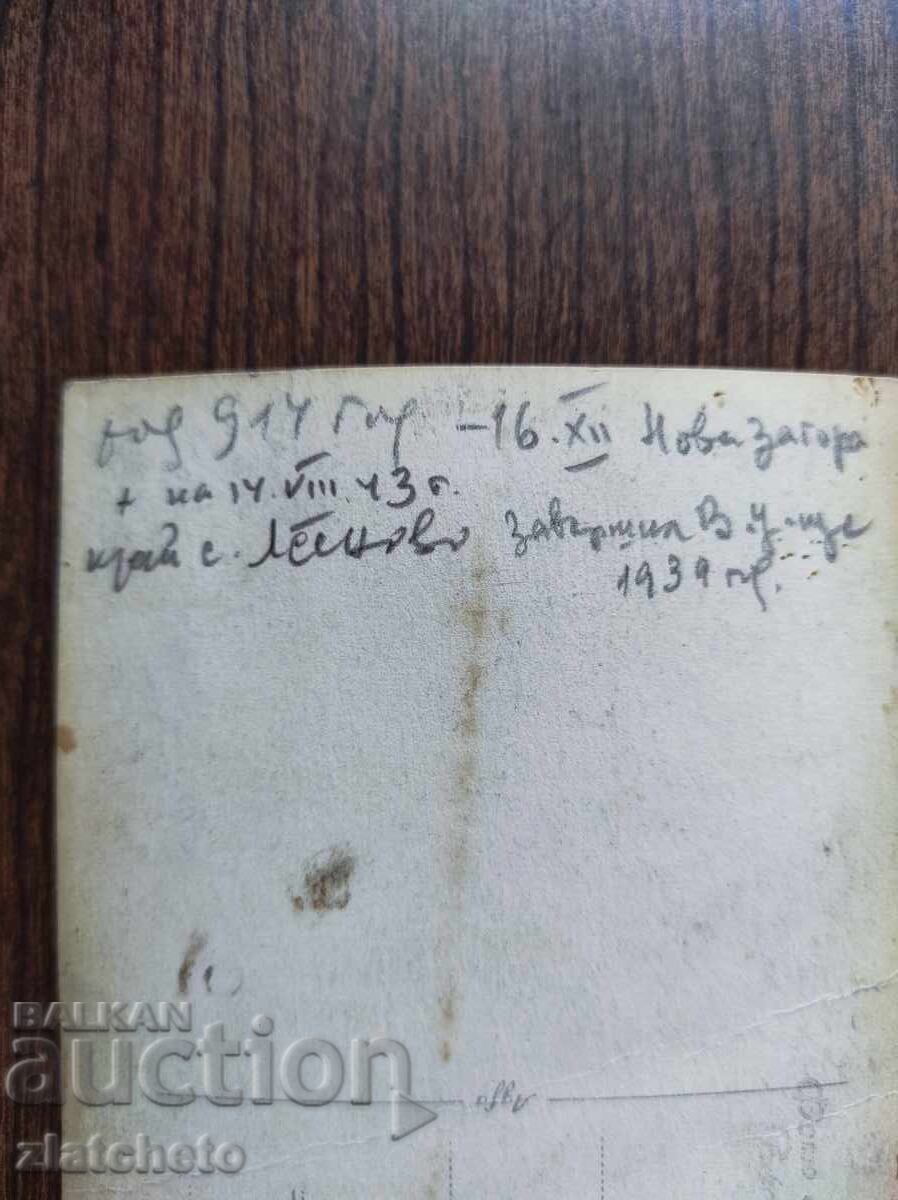 род 917 год – 16. XII Нова Загора
+ на 14. VIII. 43 г.
край с. Лесново завършил В. У-ще
1939 г.
BALKAN
auction
zlatcheto